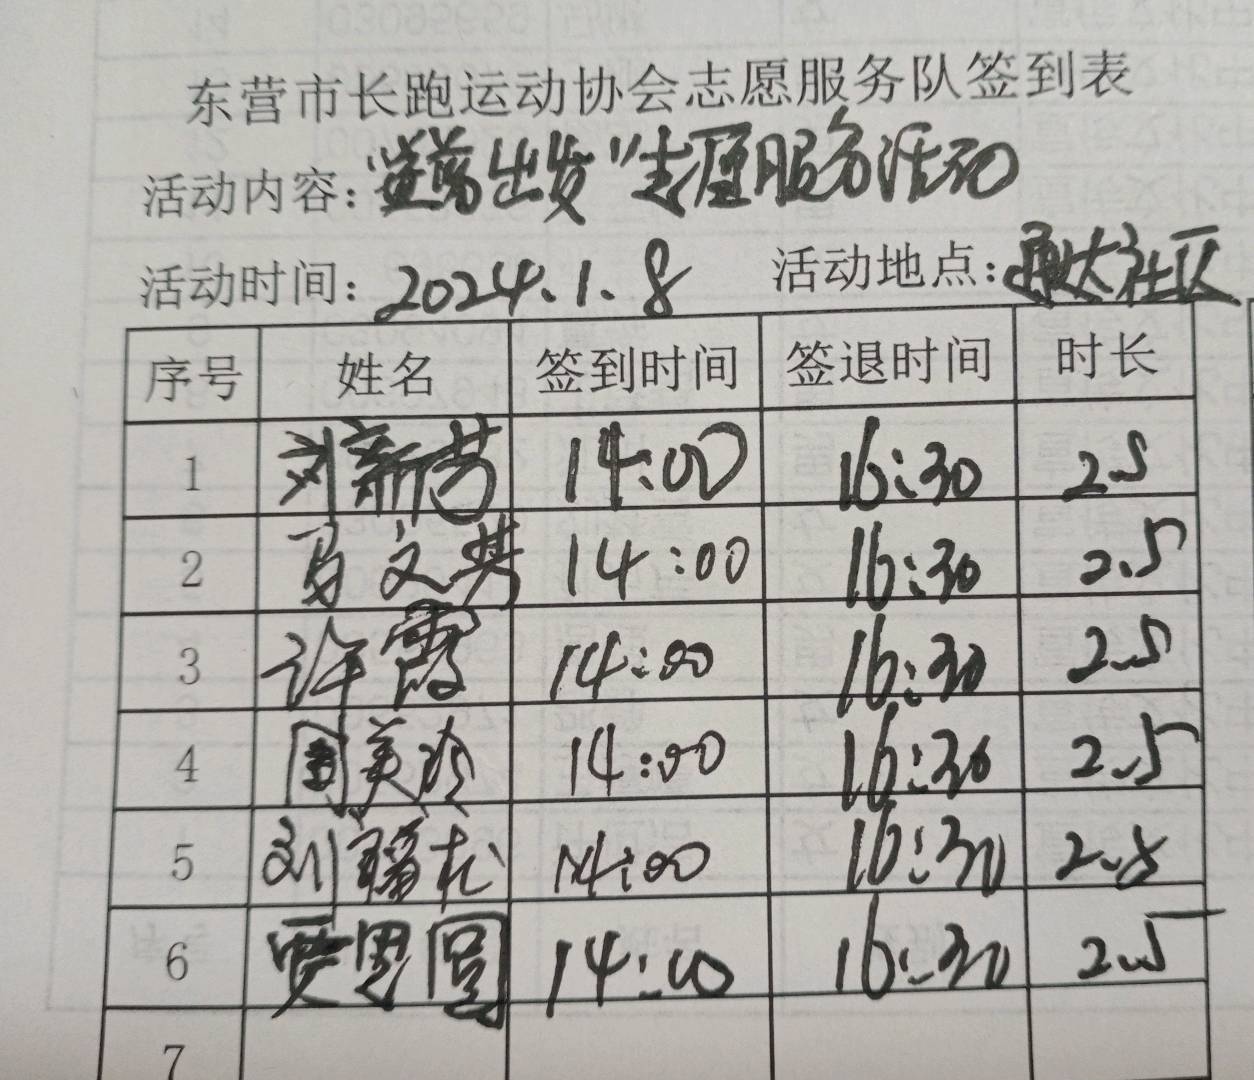 东营市长跑运动协会志愿服务队签到表
活动内容："益荐出发"生涯服务活动
活动时间：2024.1.8 活动地点：通大社区
序号 姓名 签到时间 签退时间 时长
1 刘新芳 14:00 16:30 2.5
2 马文英 14:00 16:30 2.5
3 许霞 14:00 16:30 2.5
4 周美玲 14:00 16:30 2.5
5 刘瑞 14:00 16:30 2.5
6 贾思圆 14:00 16:30 2.5
7